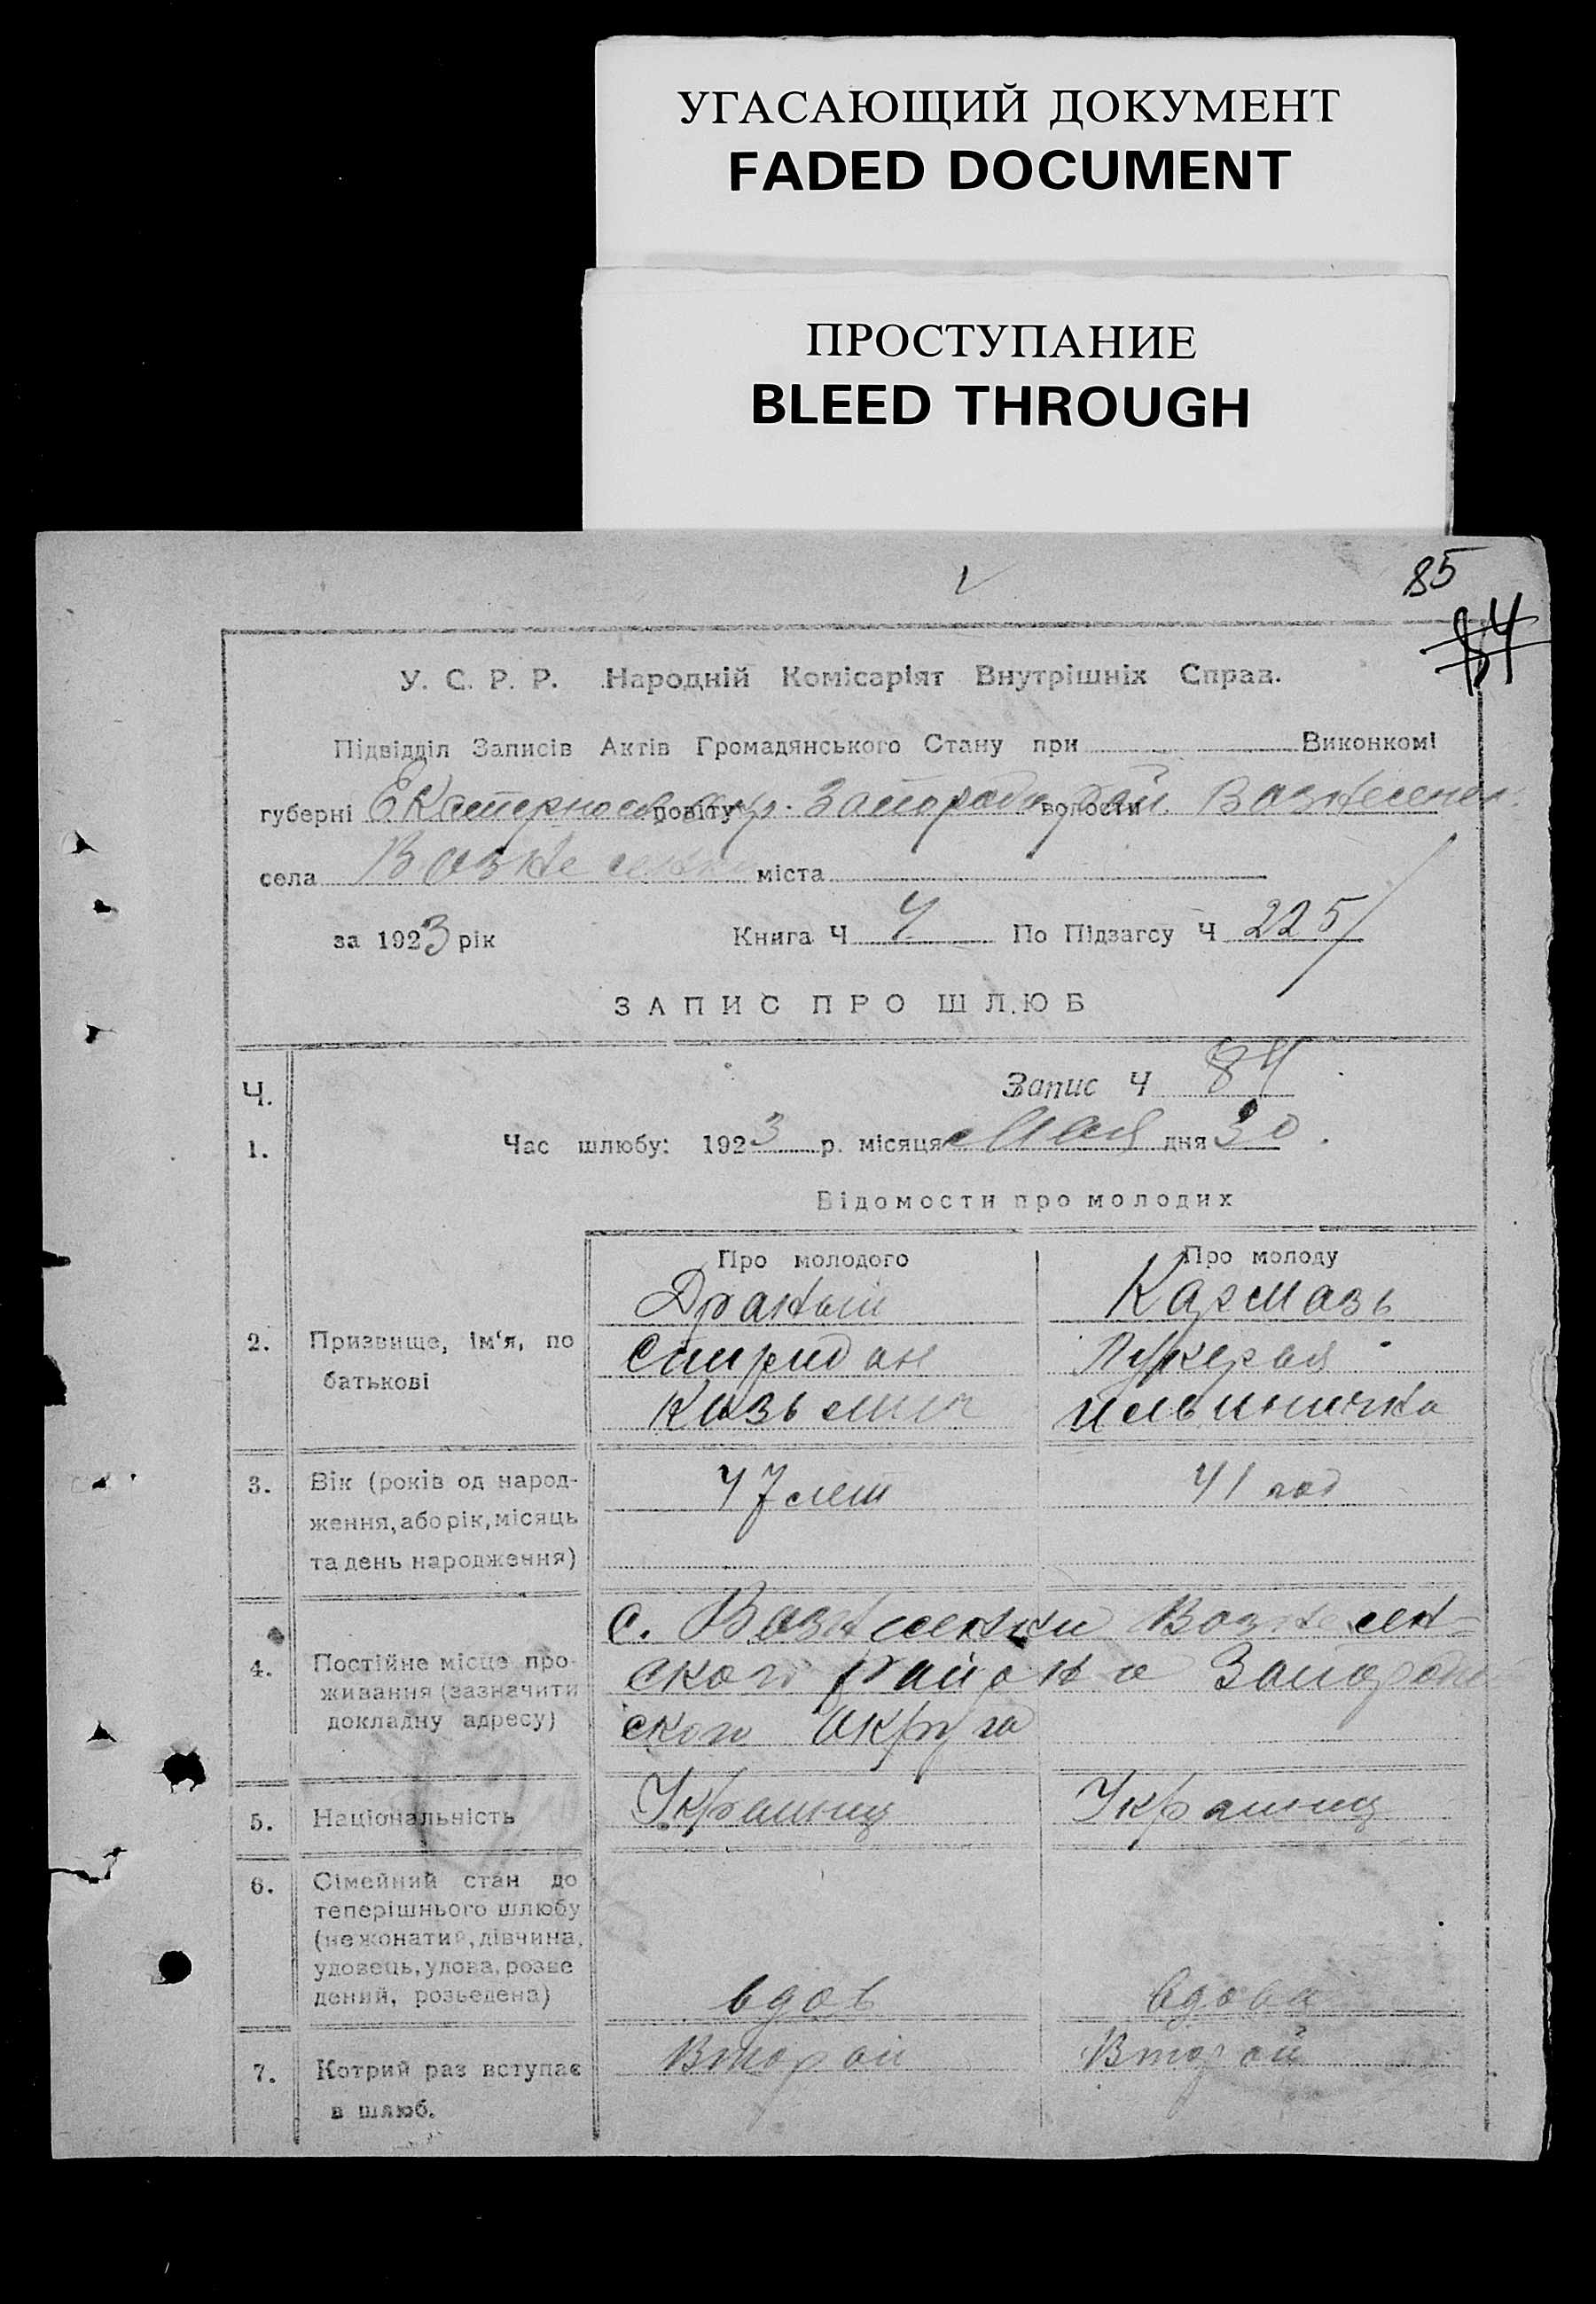 УГАСАЮЩИЙ ДОКУМЕНТ
FADED DOCUMENT
ПРОСТУПАНИЕ
BLEED THROUGH
85
84
У. С. Р. Р. Народній Комісаріят Внутрішніх Справ.
Підвідділ Записів Актів Громадянського Стану при Виконкомі
губерні Екатеринослав повіту окр. Запорож волости рай. Вознесенск.
села Вознесенки міста
за 1923 рік Книга Ч 4 По Підзагсу Ч 225
ЗАПИС ПРО ШЛЮБ
Ч. Запис Ч 84
1. Час шлюбу: 1923 р. місяця Мая дня 30.
Відомости про молодих
Про молодого Про молоду
Драный Кармазь
2. Призвище, ім'я, по Спиридон Лукерья
батькові Козьмич Ильинична
3. Вік (років од народ- 47 лет 41 год
ження, або рік, місяць
та день народження)
с. Вознесенки Вознесен-
4. Постійне місце про- ского района Запорож
живання (зазначити
докладну адресу) ского Округа
5. Національність Украинец Украинец
6. Сімейний стан до
теперішнього шлюбу
(нежонатий, дівчина,
удовець, удова, розве
дений, розведена) вдов вдова
7. Котрий раз вступає Второй Второй
в шлюб.